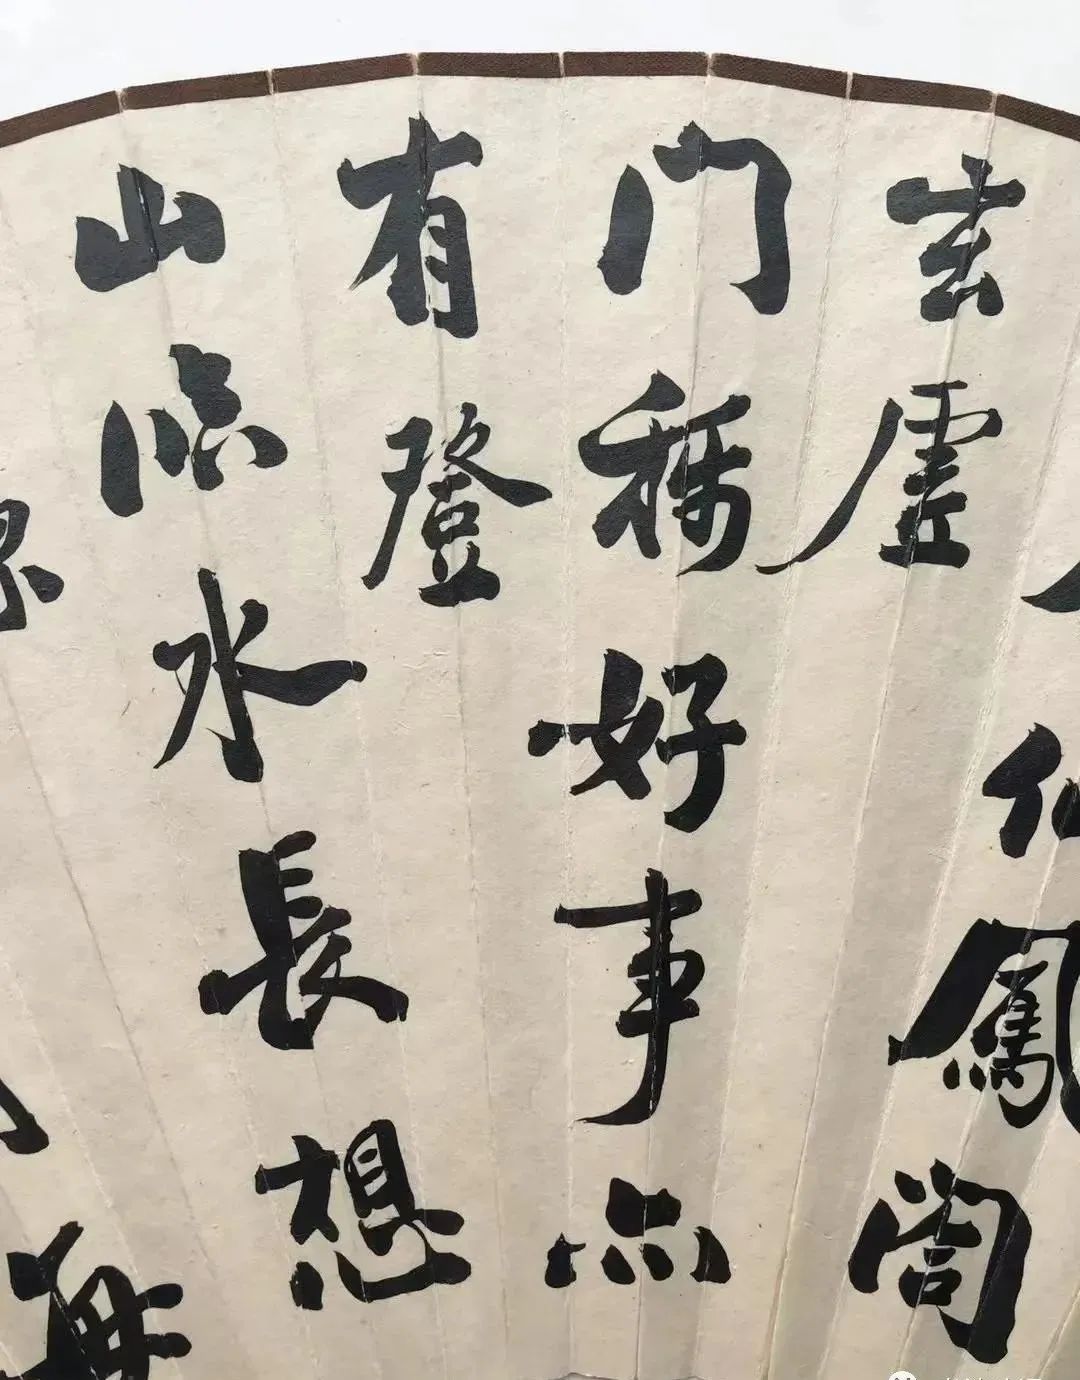 仙鳳
玄虛
门稱好事亦
有登
山临水長想